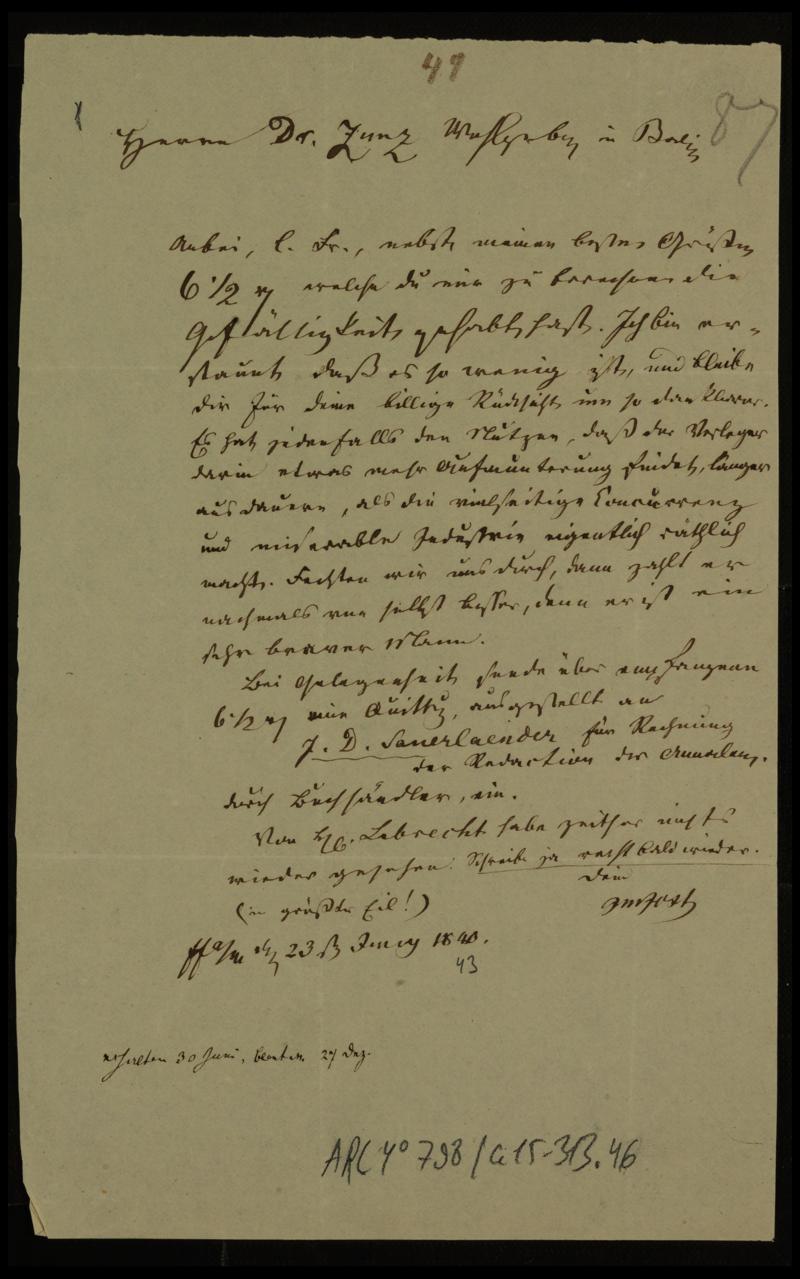 47
87
Herrn Dr. Zunz Wohlgeb. in Berlin
Anbei, l. Fr., nebst meinen besten Grüßen
6 1/2 welche du mir zu berechnen die
Gefälligkeit gehabt hast. Ich bin er-
staunt daß es so wenig ist, und bleibe
dir für deine billige Rücksicht um so dankbarer.
Es hat jedenfalls den Nutzen, daß der Verleger
darin etwas mehr Aufmunterung findet, länger
auszudauern, als die vielseitige Concurrenz
und miserable Industrie eigentlich räthlich
macht. Fechten wir uns durch, dann zahlt er
nachmals von selbst besser, denn er ist ein
sehr braver Mann.
Bei Gelegenheit sende über empfangene
6 1/2 eine Quittg, ausgestellt an
J. D. Sauerlaender für Rechnung
der Redaction der Annalen,
durch Buchhändler, ein.
Von Lebrecht habe zeither nichts
wieder gesehen. Schreibe ja recht bald wieder.
Dein
(in größter Eil!) Jost
ff a/m d 23 st Juny 1840.
43
erhalten 30 Juni, beantw. 27 Dez.
ARC 4° 798/a15-313.46